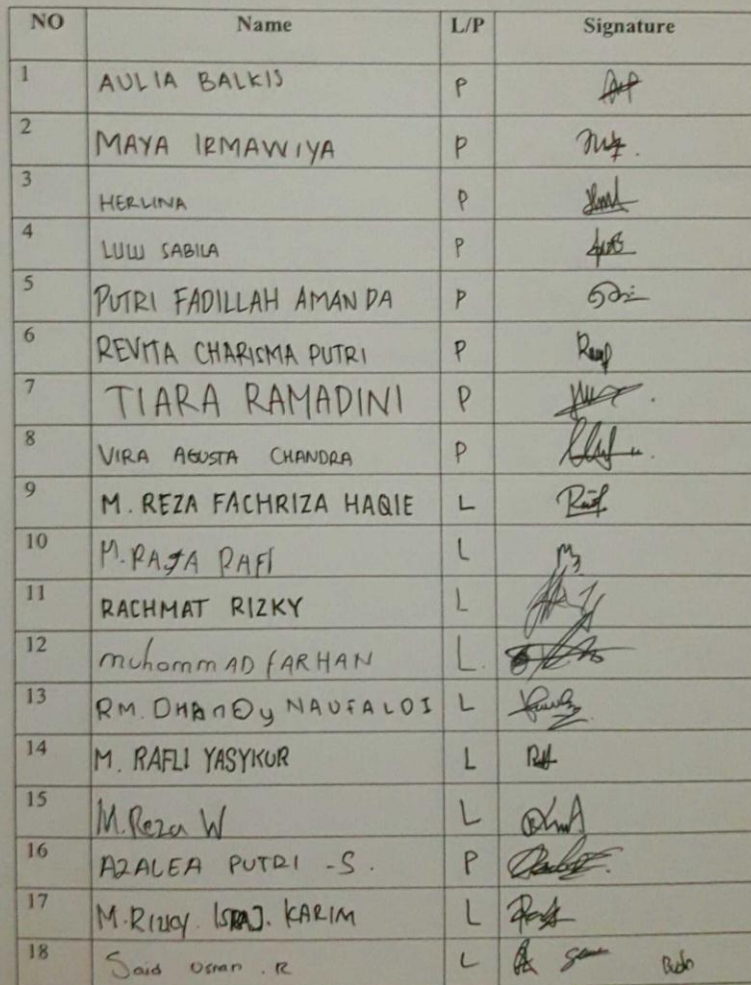 NO Name L/P Signature
1 AULIA BALKIS P
2 MAYA IRMAWIYA P
3 HERLINA P
4 LULU SABILA P
5 PUTRI FADILLAH AMANDA P
6 REVITA CHARISMA PUTRI P
7 TIARA RAMADINI P
8 VIRA AGUSTA CHANDRA P
9 M. REZA FACHRIZA HAQIE L
10 M. RAJA RAFI L
11 RACHMAT RIZKY L
12 muhammAD fARHAN L.
13 RM. DHAnDy NAUFALDI L
14 M. RAFLI YASYKUR L
15 M. Reza W L
16 AZALEA PUTRI -S. P
17 M. RIZKY. KARIM L
18 Said Osman .R L